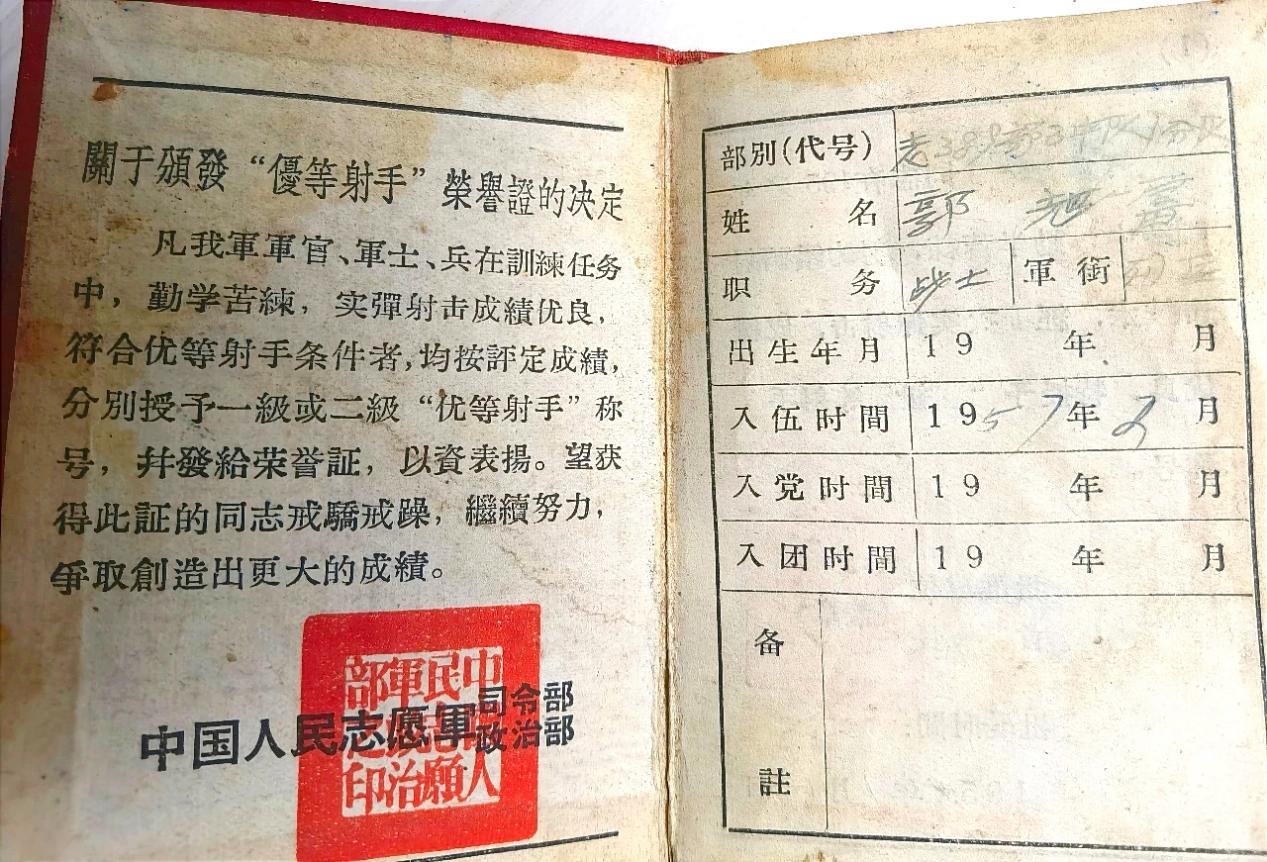 關于頒發“優等射手”榮譽證的决定
凡我軍軍官、軍士、兵在訓練任务
中，勤学苦練，实彈射击成績优良，
符合优等射手条件者，均按評定成績，
分別授予一級或二級“优等射手”称
号，幷發給荣誉証，以資表揚。望获
得此証的同志戒驕戒躁，繼續努力，
爭取創造出更大的成績。
中国人民志愿軍司令部
政治部
部別(代号)
姓 名 郭
职 务 战士 軍銜
出生年月 19 年 月
入伍时間 1957年2月
入党时間 19 年 月
入团时間 19 年 月
备
註